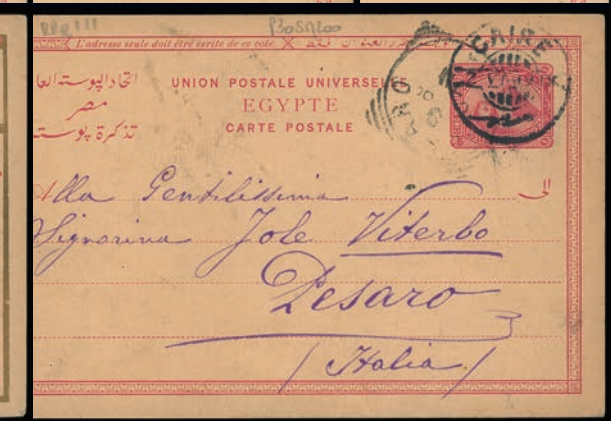 L'adresse seule doit être écrite de ce côté.
UNION POSTALE UNIVERSELLE
EGYPTE
CARTE POSTALE
مصر
تذكرة
الى
CAIRE
Alla Gentilissima
Signorina Jole Viterbo
Pesaro
(Italia)